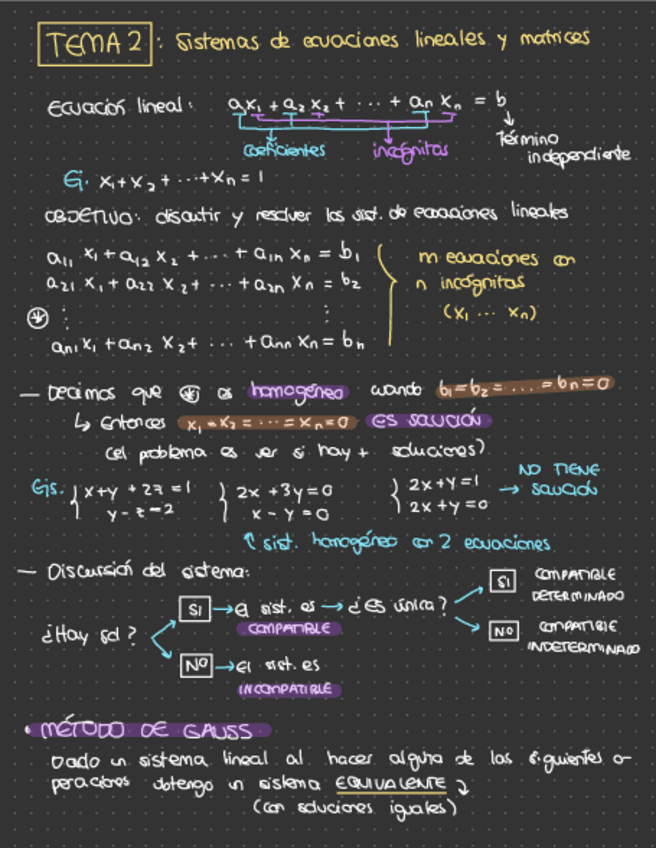 TEMA 2 : Sistemas de ecuaciones lineales y matrices
Ecuación lineal: a₁x₁ + a₂x₂ + ... + aₙxₙ = b
coeficientes incógnitas Término independiente
Ej. x₁ + x₂ + ... + xₙ = 1
OBJETIVO: discutir y resolver los sist. de ecuaciones lineales
a₁₁ x₁ + a₁₂ x₂ + ... + a₁ₙ xₙ = b₁
a₂₁ x₁ + a₂₂ x₂ + ... + a₂ₙ xₙ = b₂
⋮ ⋮
aₙ₁ x₁ + aₙ₂ x₂ + ... + aₙₙ xₙ = bₙ
m ecuaciones con
n incógnitas
(x₁ ... xₙ)
— Decimos que * es homogéneo cuando b₁ = b₂ = ... = bₙ = 0
↳ Entonces x₁ = x₂ = ... = xₙ = 0 ES SOLUCIÓN
(el problema es ver si hay + soluciones)
Ejs. { x + y + 2z = 1 { 2x + 3y = 0 { 2x + y = 1 → NO TIENE SOLUCIÓN
y - z = 2 x - y = 0 2x + y = 0
↑ sist. homogéneo con 2 ecuaciones
— Discursión del sistema:
¿Hay sol?
SI → el sist. es COMPATIBLE → ¿Es única?
SI COMPATIBLE DETERMINADO
NO COMPATIBLE INDETERMINADO
NO → El sist. es INCOMPATIBLE
• MÉTODO DE GAUSS
Dado un sistema lineal al hacer alguna de las siguientes o-
peraciones obtengo un sistema EQUIVALENTE
(con soluciones iguales)